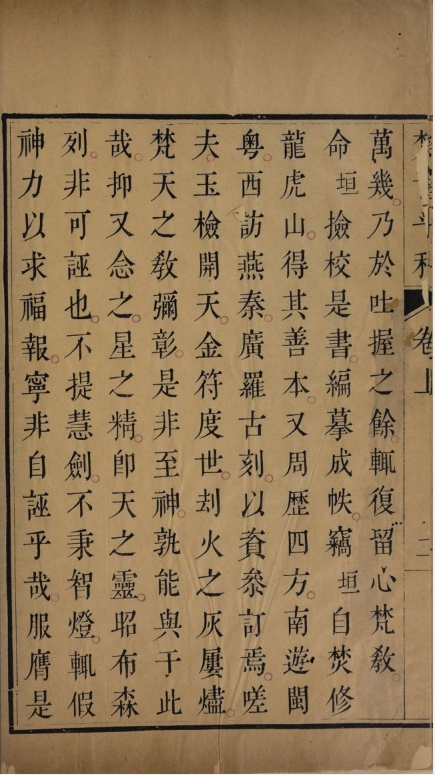 梵音斗科 卷上 二
萬幾。乃於吐握之餘。輒復留心梵敎。
命垣撿校是書。編摹成帙。竊垣自焚修
龍虎山。得其善本。又周歷四方。南遊閩
粵。西訪燕秦。廣羅古刻。以資叅訂焉。嗟
夫。玉檢開天。金符度世。刦火之灰屢燼。
梵天之敎彌彰。是非至神。孰能與于此
哉。抑又念之。星之精。卽天之靈。昭布森
列。非可誣也。不提慧劍。不秉智燈。輒假
神力以求福報。寧非自誣乎哉。服膺是